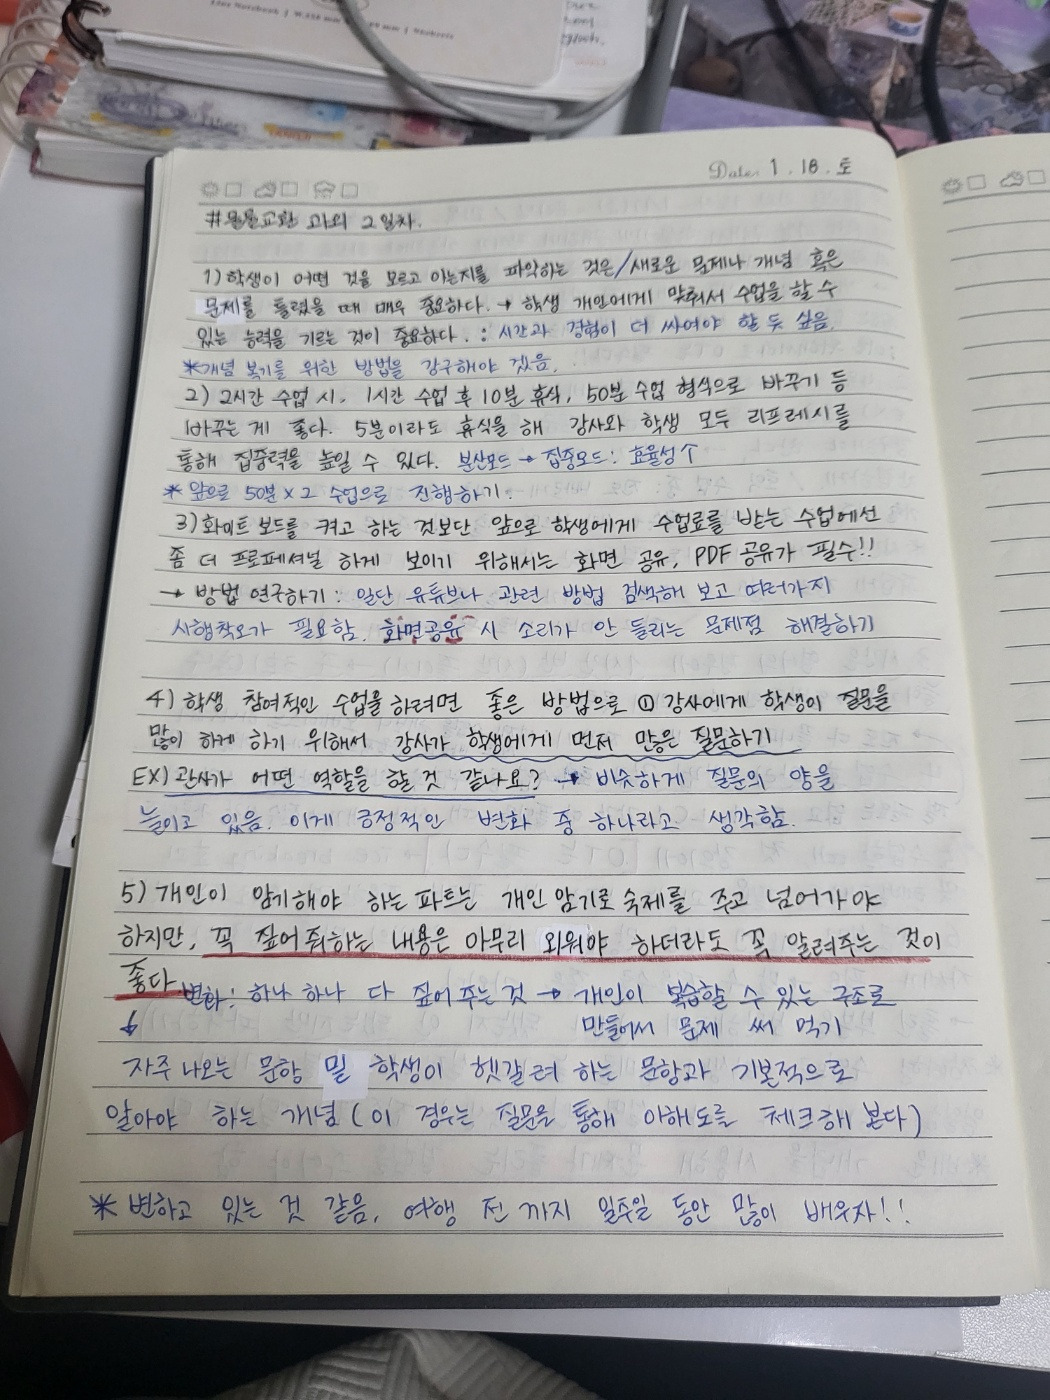 Date. 1. 18. 토
#물물교환 과외 2일차.
1) 학생이 어떤 것을 모르고 아는지를 파악하는 것은/새로운 문제나 개념 혹은
문제를 틀렸을 때 매우 중요하다. → 학생 개인에게 맞춰서 수업을 할 수
있는 능력을 기르는 것이 중요하다. : 시간과 경험이 더 쌓여야 할 듯 싶음.
*개념 복기를 위한 방법을 강구해야 겠음.
2) 2시간 수업 시, 1시간 수업 후 10분 휴식, 50분 수업 형식으로 바꾸기 등
바꾸는 게 좋다. 5분이라도 휴식을 해 강사와 학생 모두 리프레시를
통해 집중력을 높일 수 있다. 분산모드 → 집중모드: 효율성↑
* 앞으로 50분×2 수업으로 진행하기.
3) 화이트 보드를 켜고 하는 것보단 앞으로 학생에게 수업료를 받는 수업에선
좀 더 프로페셔널 하게 보이기 위해서는 화면 공유, PDF 공유가 필수!!
→ 방법 연구하기: 일단 유튜브나 관련 방법 검색해 보고 여러가지
시행착오가 필요함. 화면공유 시 소리가 안 들리는 문제점 해결하기
4) 학생 참여적인 수업을 하려면 좋은 방법으로 ① 강사에게 학생이 질문을
많이 하게 하기 위해서 강사가 학생에게 먼저 많은 질문하기
EX) 관사가 어떤 역할을 할 것 같나요? → 비슷하게 질문의 양을
늘이고 있음. 이게 긍정적인 변화 중 하나라고 생각함.
5) 개인이 암기해야 하는 파트는 개인 암기로 숙제를 주고 넘어가야
하지만, 꼭 짚어줘야하는 내용은 아무리 외워야 하더라도 꼭 알려주는 것이
좋다 변화: 하나 하나 다 짚어 주는 것 → 개인이 복습할 수 있는 구조로
↓ 만들어서 문제 써 먹기
자주 나오는 문항 및 학생이 헷갈려 하는 문항과 기본적으로
알아야 하는 개념 (이 경우는 질문을 통해 이해도를 체크해 본다)
* 변하고 있는 것 같음, 여행 전 까지 일주일 동안 많이 배우자!!